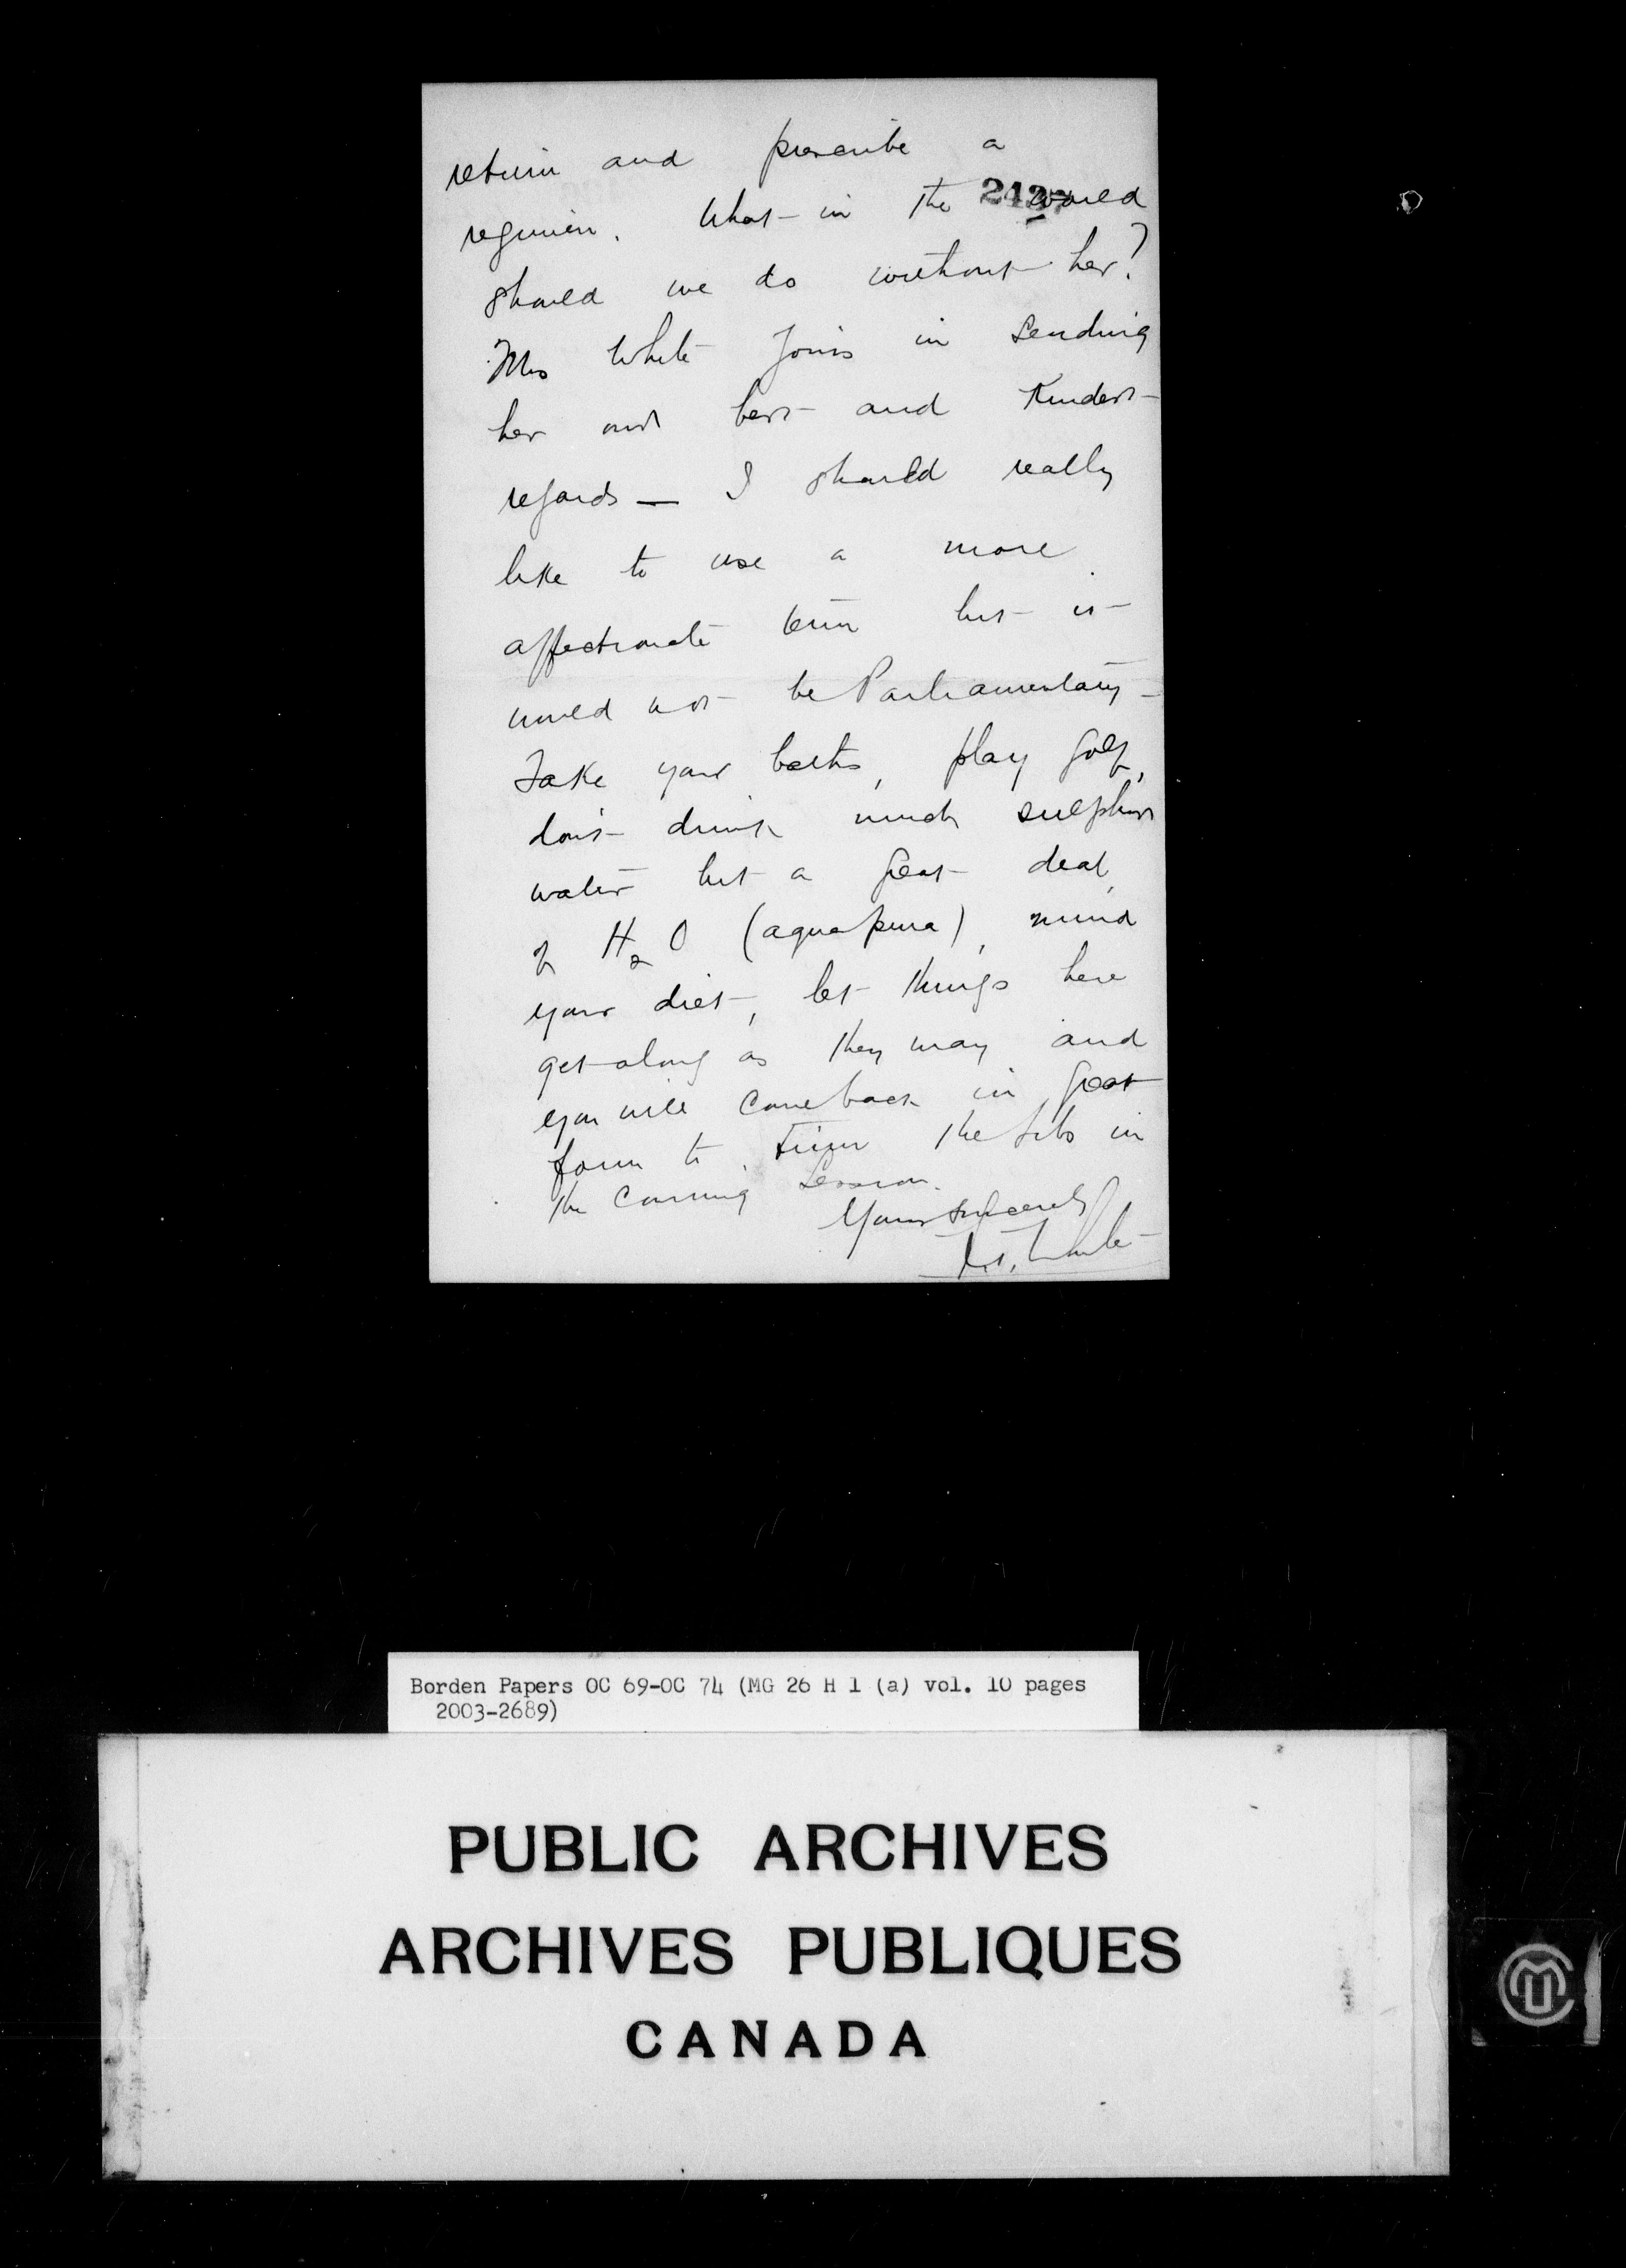 return and prescribe a
2437
regimen. What in the world
should we do without her?
Mrs White joins in sending
her our best and kindest
regards — I should really
like to use a more
affectionate term but it
would not be Parliamentary —
Take your baths, play golf,
don't drink much sulphur
water but a great deal
of H2O (aqua pura), mind
your diet, let things here
get along as they may and
you will come back in great
form to trim the Grits in
the coming Session.
Yours sincerely
White
Borden Papers OC 69-OC 74 (MG 26 H 1 (a) vol. 10 pages
2003-2689)
PUBLIC ARCHIVES
ARCHIVES PUBLIQUES
CANADA